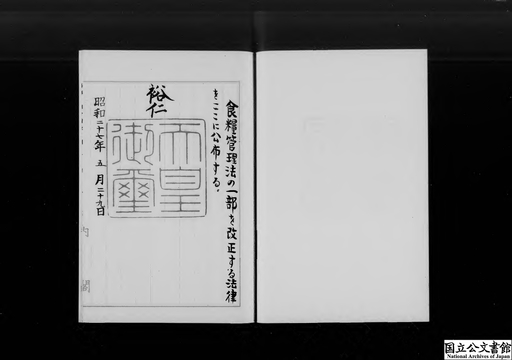 食糧管理法の一部を改正する法律
をここに公布する。
裕仁
天皇
御璽
昭和二十七年五月二十九日
内閣
国立公文書館
National Archives of Japan